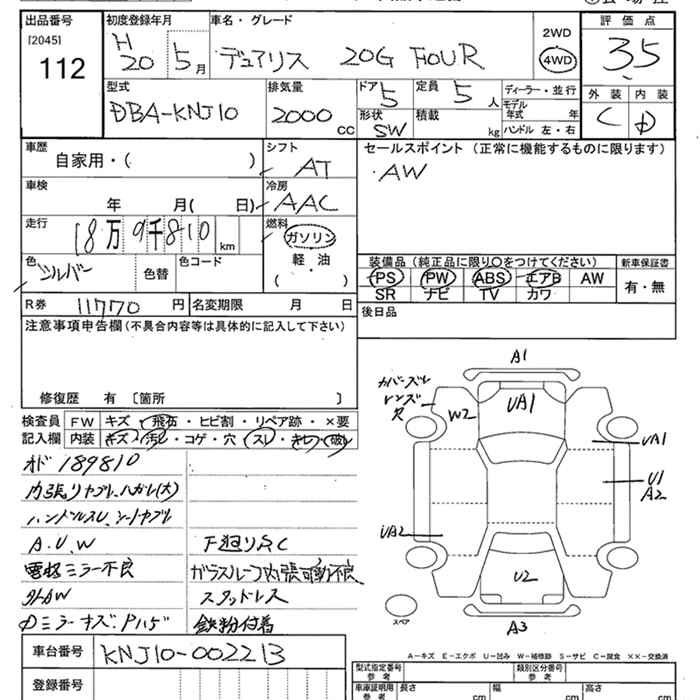 出品番号 [2045] 112
初度登録年月 H20 5月
車名・グレード デュアリス 20G FOUR
2WD 4WD
評価点 3.5
外装 C 内装 D
型式 DBA-KNJ10
排気量 2000 cc
ドア 5 定員 5 人
形状 SW 積載 kg
ディーラー・並行
モデル年式 年
ハンドル 左・右
車歴 自家用・( )
シフト AT
セールスポイント (正常に機能するものに限ります)
・AW
車検 年 月( 日)
冷房 AAC
走行 18万9千810 km
燃料 ガソリン 軽・油 ( )
色 シルバー 色替 色コード
装備品 (純正品に限り○をつけてください) 新車保証書
PS PW ABS エアB AW 有・無
SR ナビ TV カワ
R券 11770円 名変期限 月 日
後日品
注意事項申告欄 (不具合内容等は具体的に記入して下さい)
修復歴 有 〔箇所 〕
検査員 FW キズ・飛石・ヒビ割・リペア跡・×要
記入欄 内装 キズ・汚れ・コゲ・穴・スレ・きしつ・破れ
オド 189810
内張リヤブレ、ハガレ(大)
ハンドルスレ、シートヤブレ
A.U.W
下廻りSC
電格ミラー不良
ガラスルーフ内張可動不良
スタッドレス
Dミラーキズ・Pハゲ 鉄粉付着
A1
カバーズレ
レンズ
W2
UA1
UA1
U1
A2
UA2
U2
スペア
A3
A-キズ E-エクボ U-凹み W-補修跡 S-サビ C-腐食 XX-交換済
車台番号 KNJ10-002213
登録番号
型式指定番号 参考 類別区分番号 参考
車庫証明用 参考 長さ cm 幅 cm 高さ cm